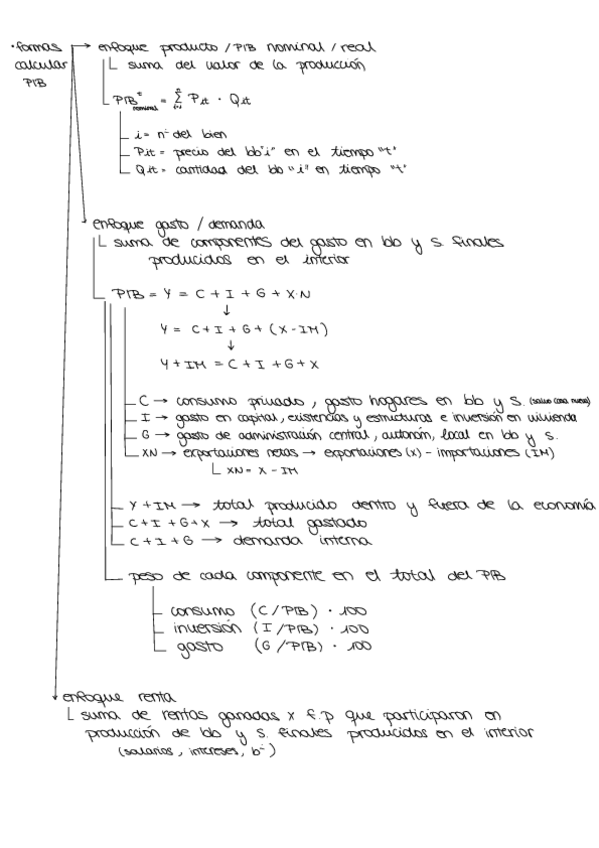 ·formas → enfoque producto / PIB nominal / real
calcular suma del valor de la producción
PIB
PIBᵗ nominal = Σ Pit · Qit
i = nº del bien
Pit = precio del bb "i" en el tiempo "t"
Qit = cantidad del bb "i" en tiempo "t"
enfoque gasto / demanda
suma de componentes del gasto en bb y s. finales
producidos en el interior
PIB = Y = C + I + G + X·N
↓
Y = C + I + G + (X - IM)
↓
Y + IM = C + I + G + X
C → consumo privado, gasto hogares en bb y s. (salvo casa nueva)
I → gasto en capital, existencias y estructuras e inversión en vivienda
G → gasto de administración central, autonóm, local en bb y s.
XN → exportaciones netas → exportaciones (X) - importaciones (IM)
XN = X - IM
Y + IM → total producido dentro y fuera de la economía
C + I + G + X → total gastado
C + I + G → demanda interna
peso de cada componente en el total del PIB
consumo (C / PIB) · 100
inversión (I / PIB) · 100
gasto (G / PIB) · 100
enfoque renta
suma de rentas ganadas x f.p que participaron en
producción de bb y s. finales producidos en el interior
(salarios, intereses, bº)